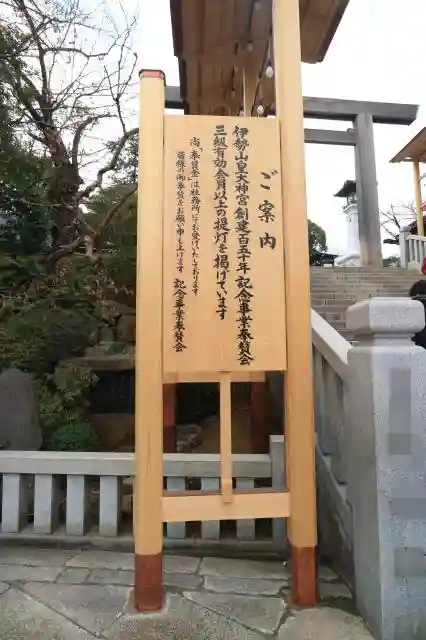 ご案内
伊勢山皇大神宮創建百五十年記念事業奉賛会
三級有効会員以上の提灯を掲げます
尚、「奉賛金」は社務所にてお受けいたしております
皆様の御奉賛をお願い申し上げます
記念事業奉賛会